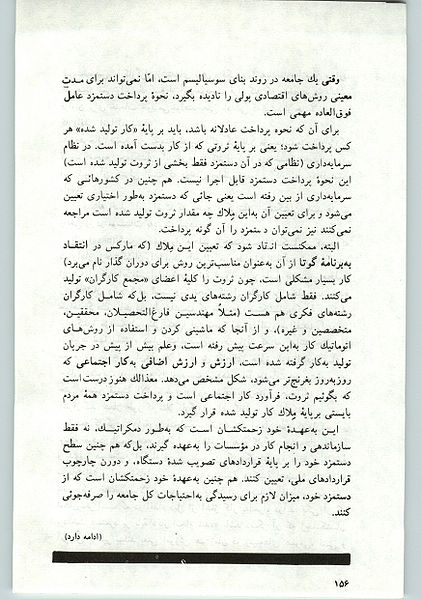 وقتی یك جامعه در روند بنای سوسیالیسم است، امّا نمی‌تواند برای مدت
معینی روش‌های اقتصادی پولی را نادیده بگیرد، نحوهٔ پرداخت دستمزد عامل
فوق‌العاده مهمی است.
برای آن که نحوه پرداخت عادلانه باشد، باید بر پایهٔ «کار تولید شده» هر
کس پرداخت شود؛ یعنی بر پایهٔ ثروتی که از کار بدست آمده است. در نظام
سرمایه‌داری (نظامی که در آن دستمزد فقط بخشی از ثروت تولید شده است)
این نحوهٔ پرداخت دستمزد قابل اجرا نیست. هم چنین در کشورهائی که
سرمایه‌داری از بین رفته است یعنی جائی که دستمزد به‌طور اختیاری تعیین
می‌شود و برای تعیین آن به‌این مِلاك چه مقدار ثروت تولید شده است مراجعه
نمی‌کنند نیز نمی‌توان دستمزد را آن گونه پرداخت.
البته، ممکنست انتقاد شود که تعیین این مِلاك (که مارکس در انتقـاد
به‌برنامهٔ گوتا از آن به‌عنوان مناسب‌ترین روش برای دوران گذار نام می‌برد)
کار بسیار مشکلی است، چون ثروت را کلیهٔ اعضای «مجمع کارگران» تولید
می‌کنند. فقط شامل کارگران رشته‌های یدی نیست، بل‌که شامـل کارگران
رشته‌های فکری هم هسـت (مثـلاً مهندسیـن فارغ‌التحصیـلان، محققیـن،
متخصصین و غیره)، و از آنجا که ماشینی کردن و استفاده از روش‌های
اتوماتیك کار به‌این سرعت پیش رفته است، وعلم بیش از پیش در جریان
تولید به‌کار گرفته شده است، ارزش و ارزش اضافی به‌کار اجتماعی که
روزبه‌روز بغرنج‌تر می‌شود، شکل مشخص می‌دهد. معذالك هنوز درست است
که بگوئیم ثروت، فرآورد کار اجتماعی است و پرداخت دستمزد همهٔ مردم
بایستی برپایهٔ مِلاك کار تولید شده قرار گیرد.
ایـن به‌عهـدهٔ خود زحمتکشـان اسـت که به‌طـور دمکراتیـك، نه فقط
سازماندهی و انجام کار در مؤسسات را به‌عهده گیرند، بل‌که هم چنین سطح
دستمزد خود را بر پایهٔ قراردادهای تصویب شدهٔ دستگاه، و دورن چارچوب
قراردادهای ملی، تعیین کنند. هم چنین به‌عهدهٔ خود زحمتکشان است که از
دستمزد خود، میزان لازم برای رسیدگی به‌احتیاجات کل جامعه را صرفه‌جوئی
کنند.
(ادامه دارد)
۱۵۶